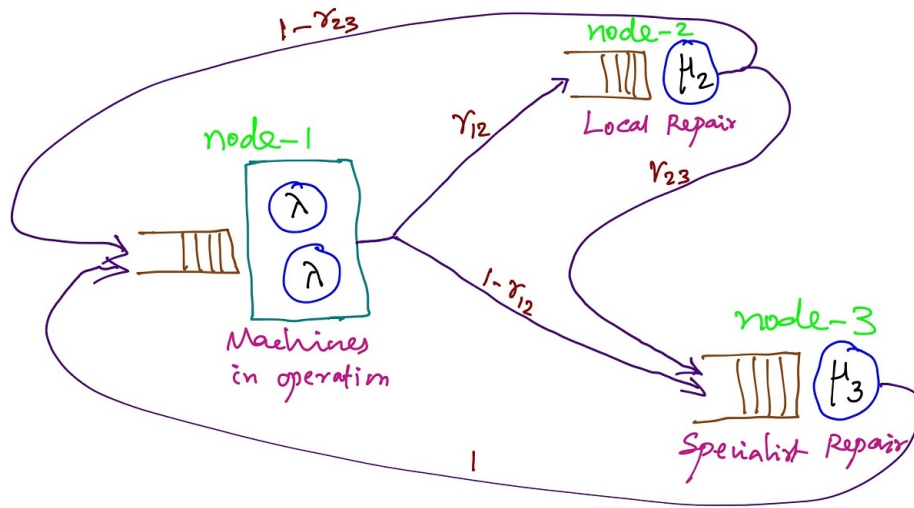 1-γ23
node-2
μ2
Local Repair
node-1
γ12
γ23
λ
λ
1-γ12
Machines
in operation
node-3
μ3
Specialist Repair
1